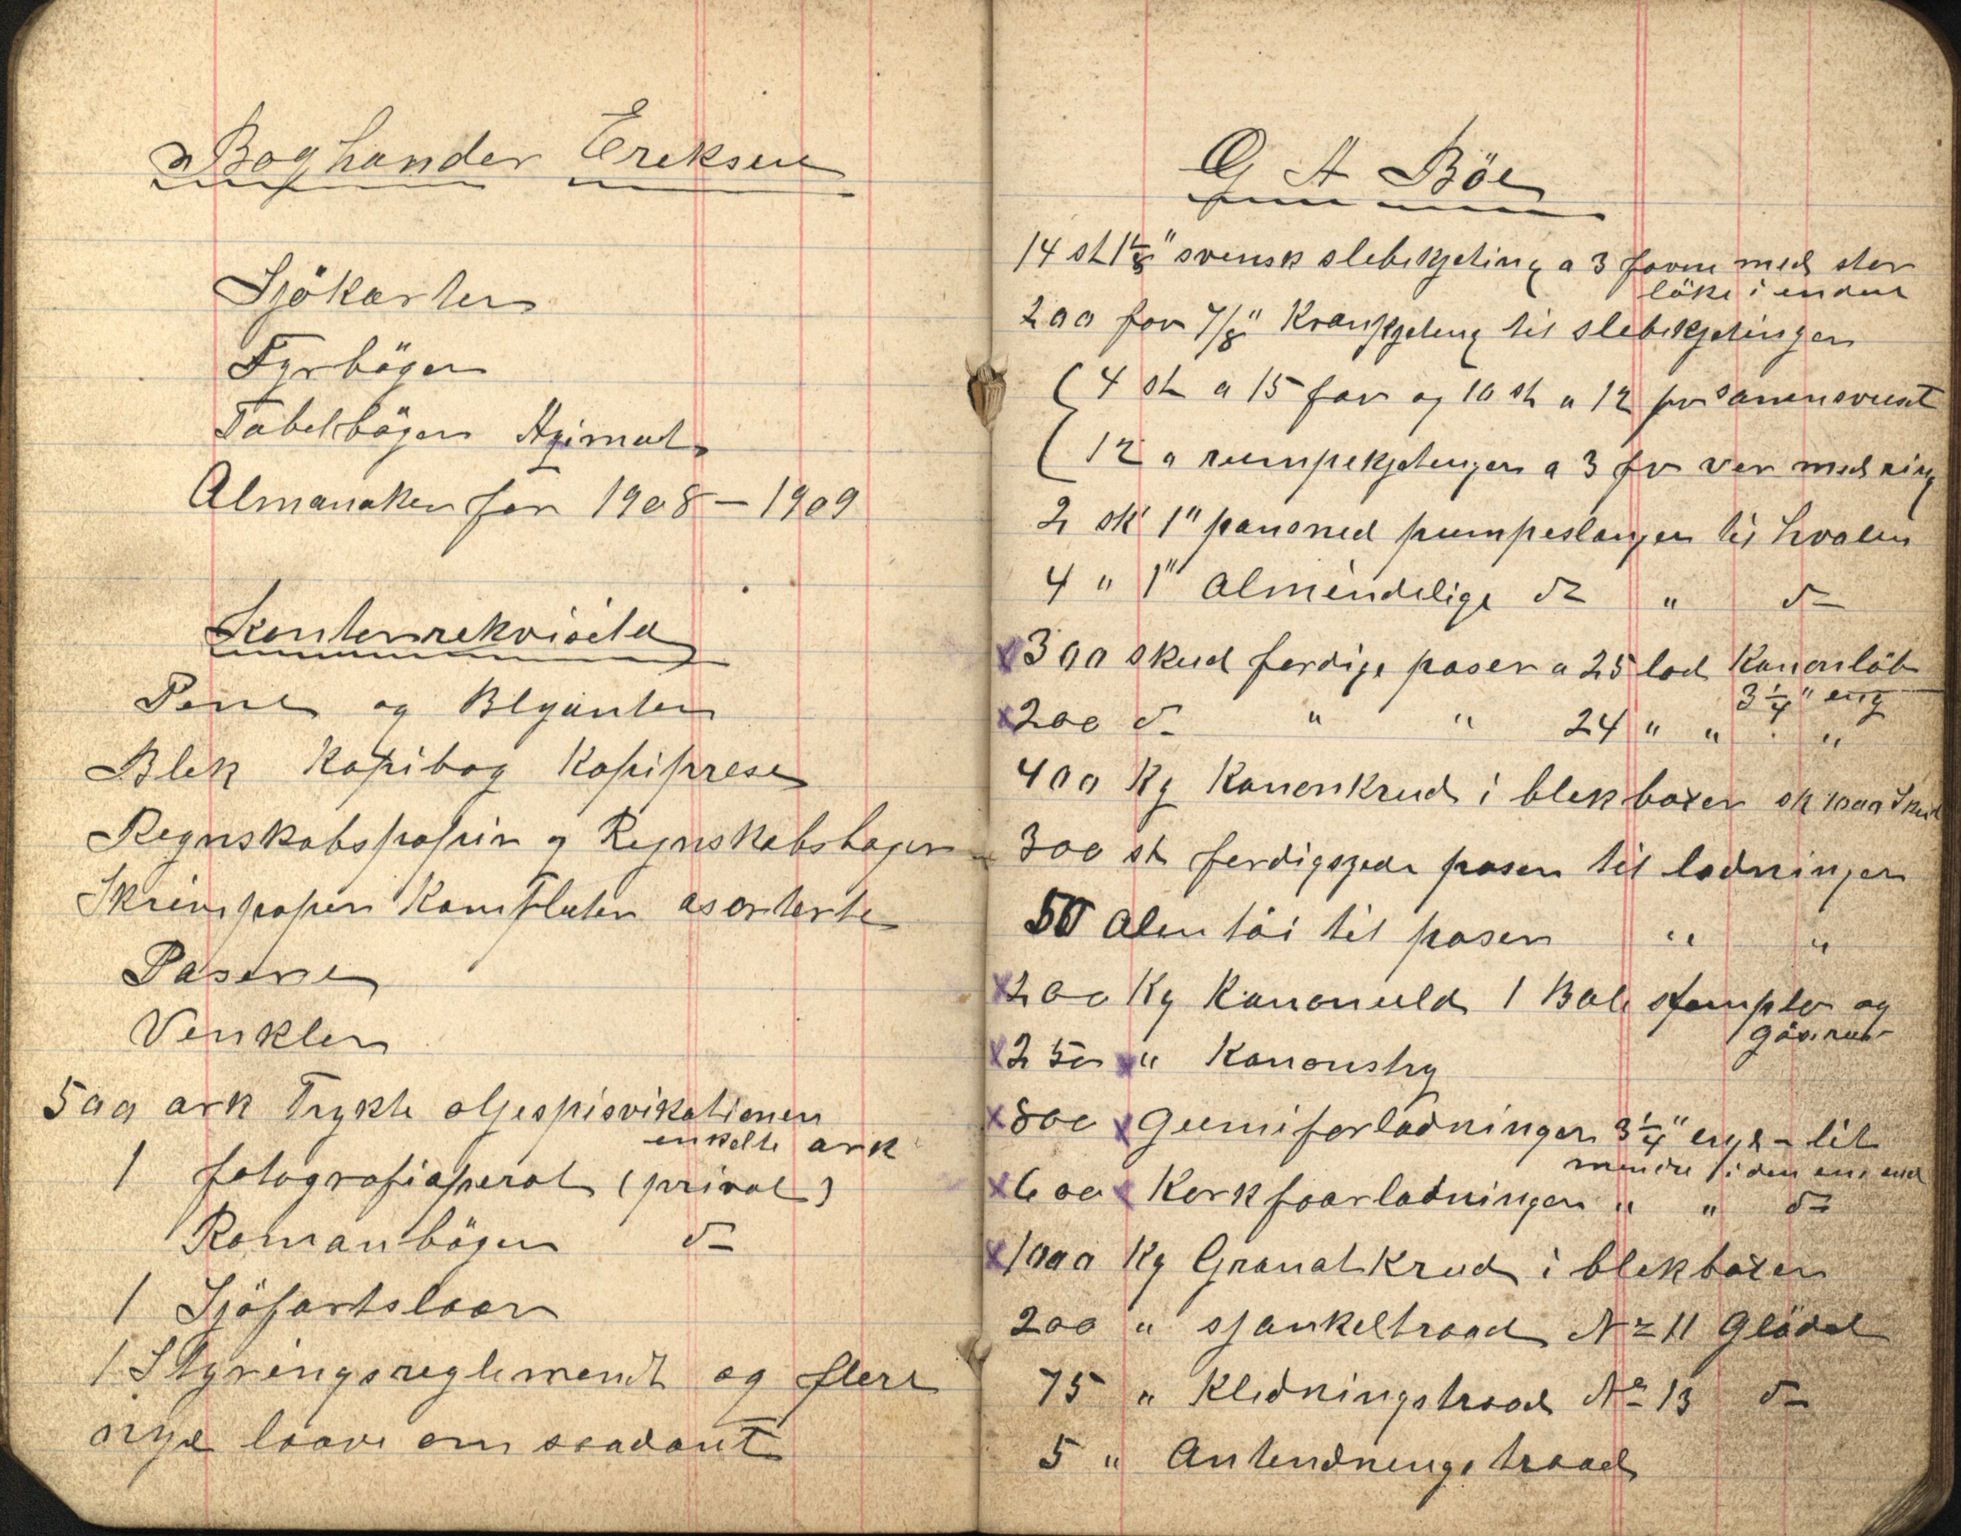 Boghander Ereksen
Sjökarter
Fyrböger
Tabelböger Azimut
Almanaker for 1908 – 1909
Kontorrekvisita
Pene og Blyanter
Blek Kopibog Kopiprese
Regnskabspapir og Regnskabsbøger
Skrivepapir Komfluter asorterte
Pasere
Venkler
500 ark Trykte oljespisvikationer
enkelte ark
1 fotografiaperat (privat)
Romanböger do
1 Sjöfartslaav
1 Styringsreglement og flere
nye laave om saadant
G A Böe
14 st 1 1/8" svensk slebekjeting a 3 favne med stor
löke i enden
200 fav 7/8" Krankjeting til slebekjetinger
(4 st a 15 fav og 10 st a 12 fv sammensveist
(12 a rumpekjetinger a 3 fv ver med ring
2 sk 1" pansred pumpeslanger til hvalen
4 " 1" almindelige do " do
x 300 skud ferdige poser a 25 lod Kanonlöb
3 1/4" eng
x 200 do " " 24 " " "
400 Kg Kanonkrud i blekboxer ok 1000 Skud
300 st ferdigsyede poser til ladninger
50 Alen töi til poser " "
x 200 Kg Kanonuld 1 Bale stemplet og
x 250 x " Kanonstry
x 800 x Gumiforladninger 3 1/4" eng – lit
mindre i den ene end
x 600 x Korkfoorladninger " " do
x 1000 Kg Granatkrud i blekboxer
200 " sjankeltraad No 11 Glödet
75 " Kledningstraad No 13 do
5 " Antendningstraad